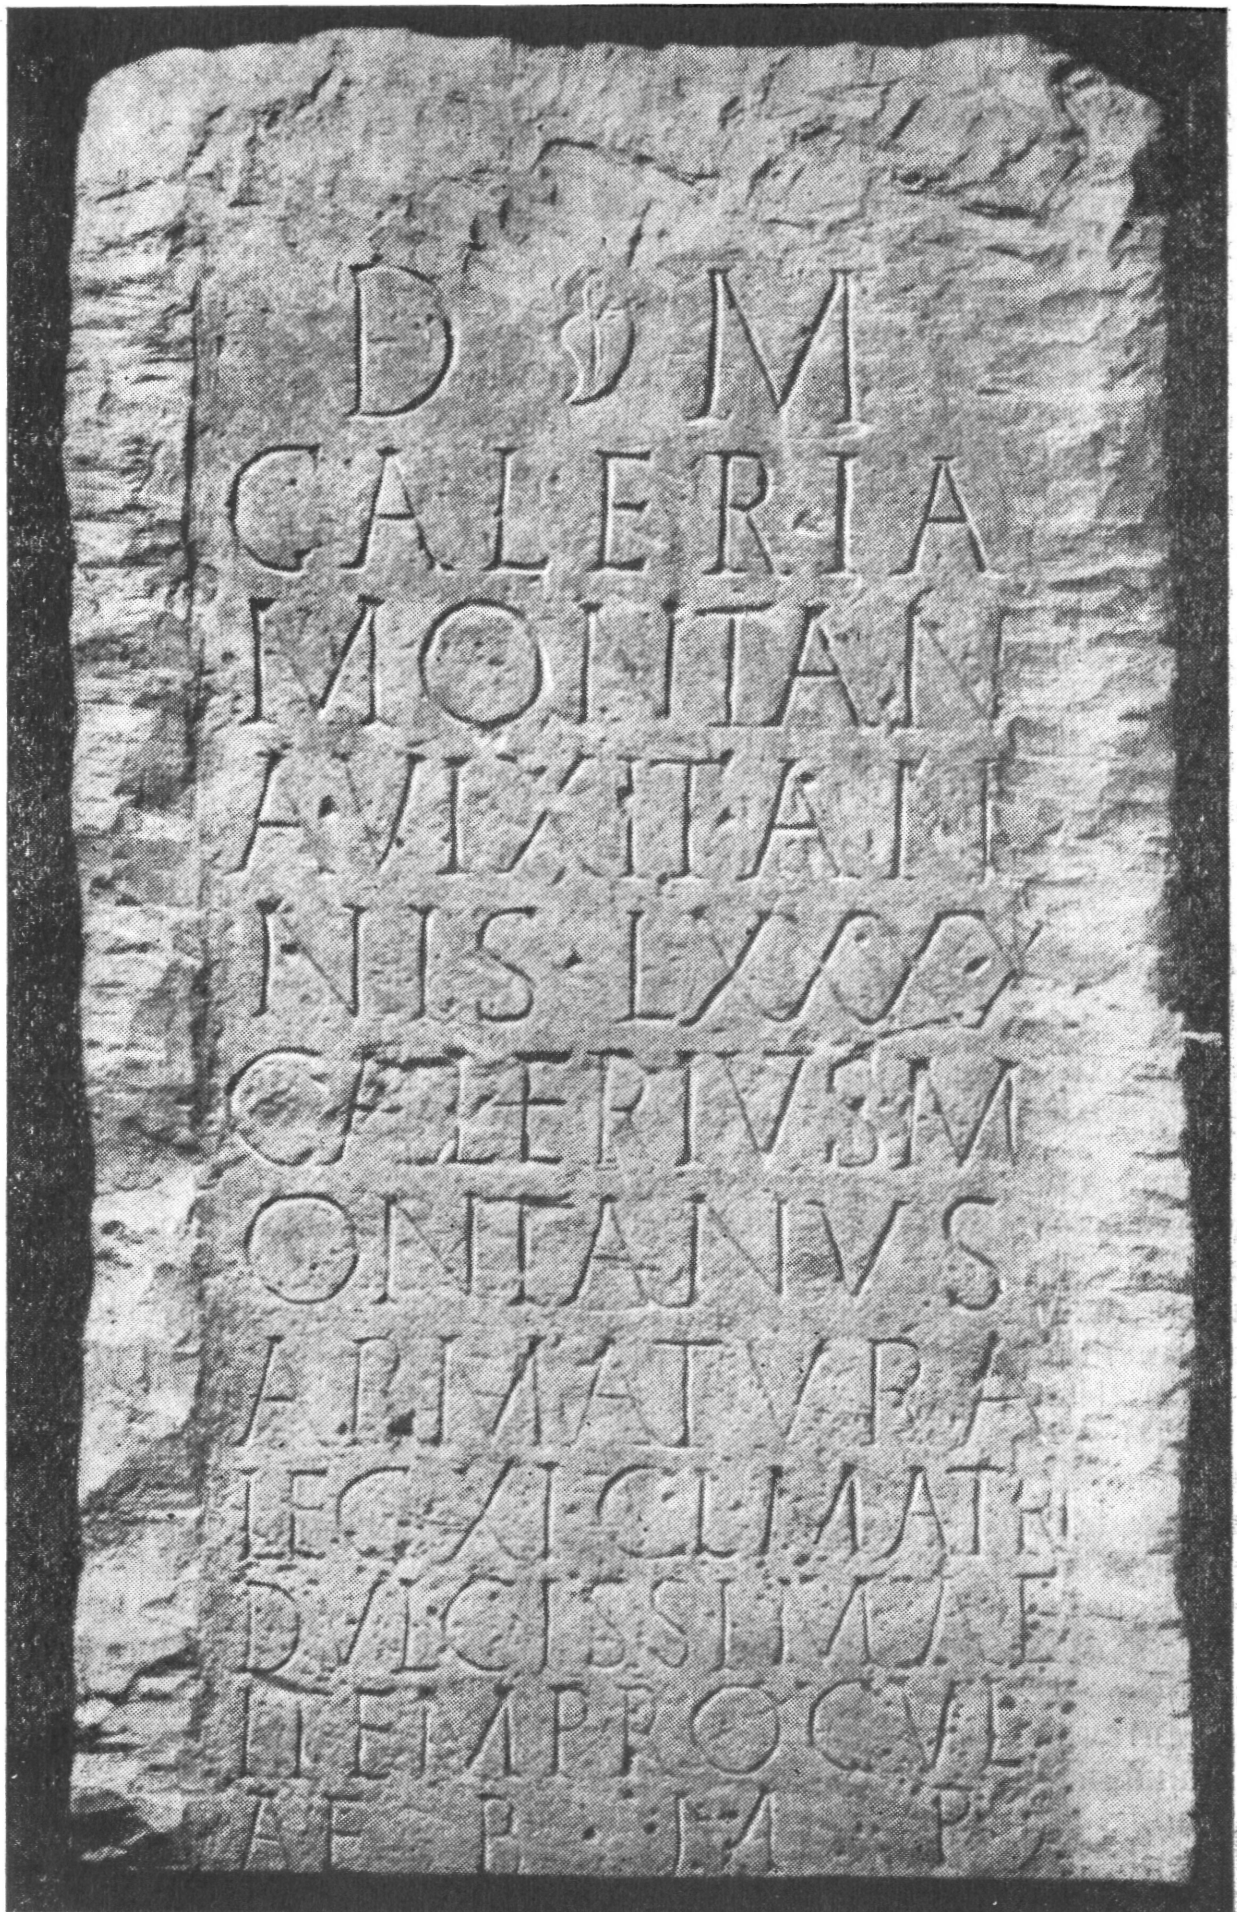 D M
CALERIA
MONTAN
A VIXIT AN
NIS · LXXXV
CALERIVS M
ONTANVS
ARMATVRA
LEG XI CL MATRI
DVLCISSIMAE
ITEM PROCVL
AE